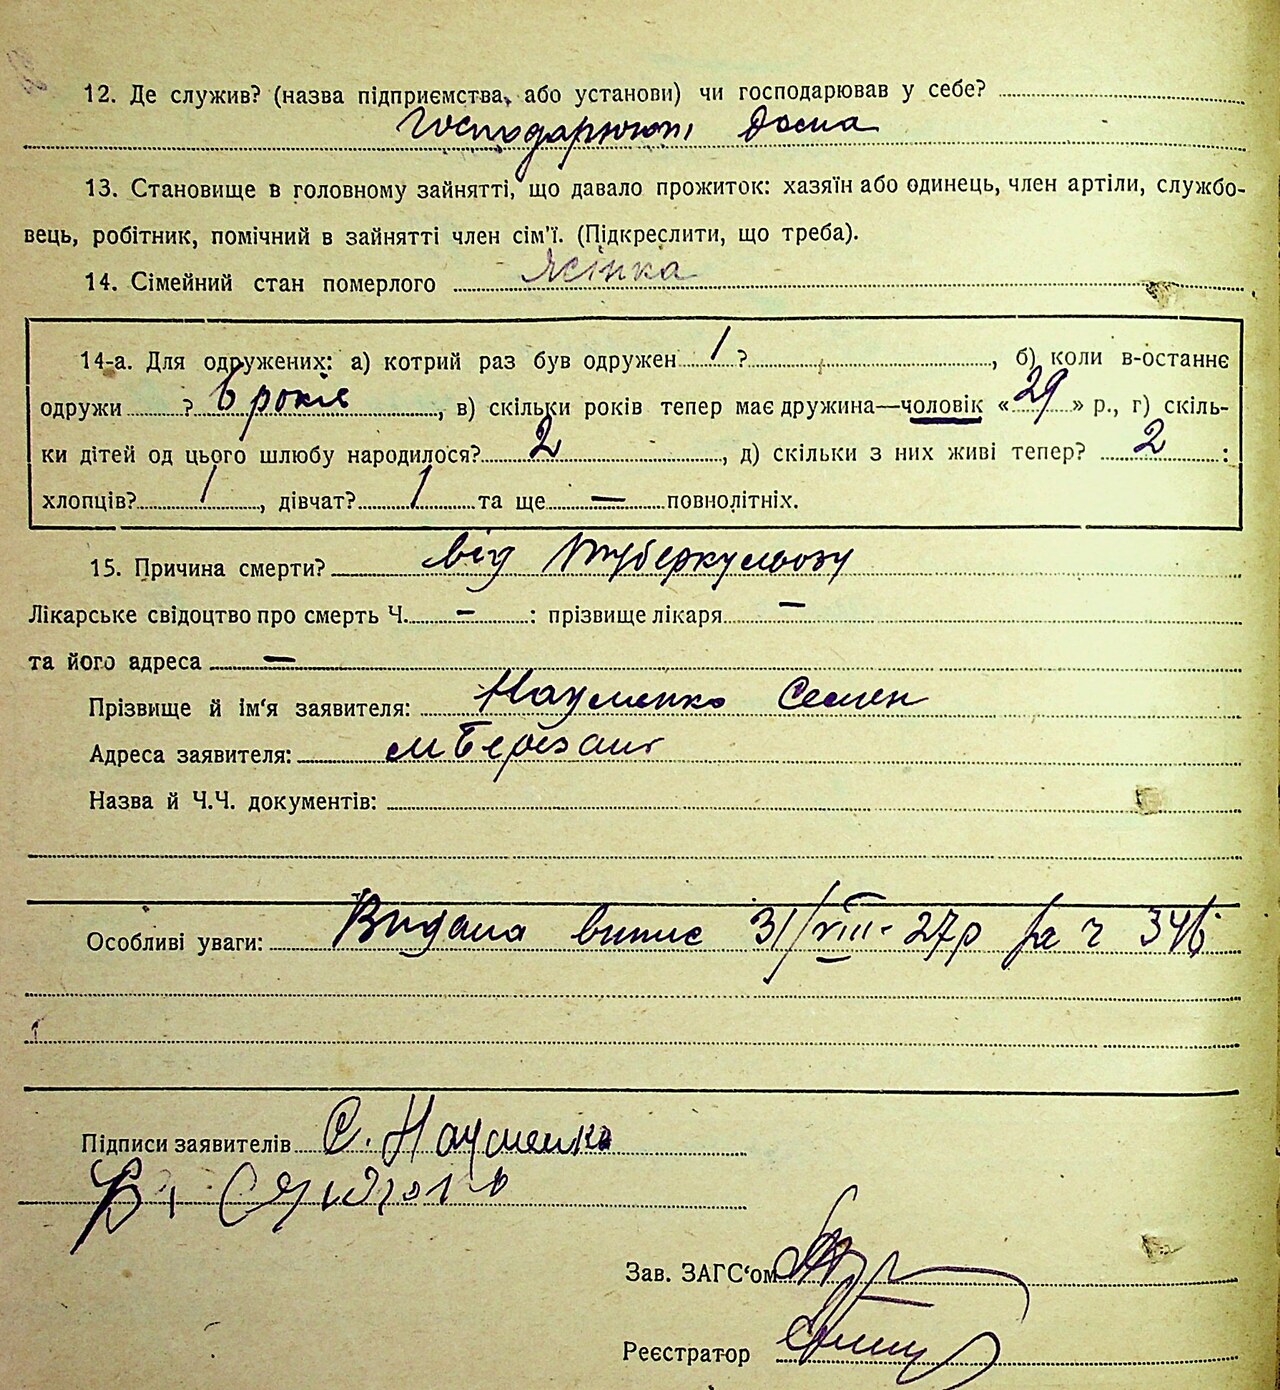 12. Де служив? (назва підприємства, або установи) чи господарював у себе?
дома
13. Становище в головному зайнятті, що давало прожиток: хазяїн або одинець, член артіли, службо-
вець, робітник, помічний в зайнятті член сім'ї. (Підкреслити, що треба).
14. Сімейний стан померлого
14-а. Для одружених: а) котрий раз був одружен 1 ? , б) коли в-останнє
одружи ? 6 років , в) скільки років тепер має дружина—чоловік «29» р., г) скіль-
ки дітей од цього шлюбу народилося? 2 , д) скільки з них живі тепер? 2 :
хлопців? 1 , дівчат? 1 та ще — повнолітніх.
15. Причина смерти? від туберкульозу
Лікарське свідоцтво про смерть Ч. – : прізвище лікаря –
та його адреса —
Прізвище й ім'я заявителя: Науменко Семен
Адреса заявителя: м Березань
Назва й Ч.Ч. документів:
Особливі уваги: Видана випис 31/VIII- 27р за ч 346
Підписи заявителів С. Науменко
Зав. ЗАГС'ом
Реєстратор